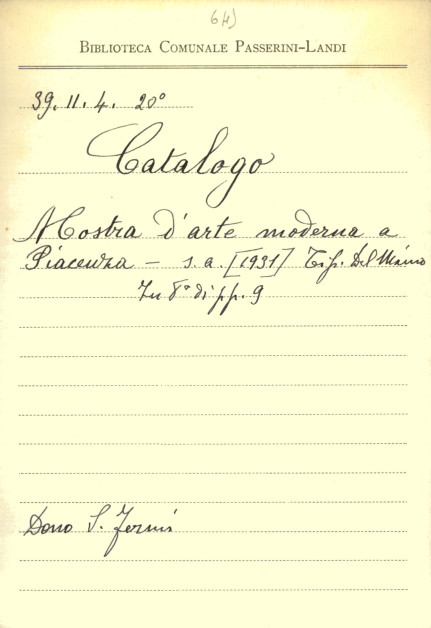 64)
BIBLIOTECA COMUNALE PASSERINI-LANDI
39. II. 4. 20°
Catalogo
Mostra d'arte moderna a
Piacenza - s. a. [1931] Tip. Del Maino
In 8° di pp. 9
Dono S. Fermi